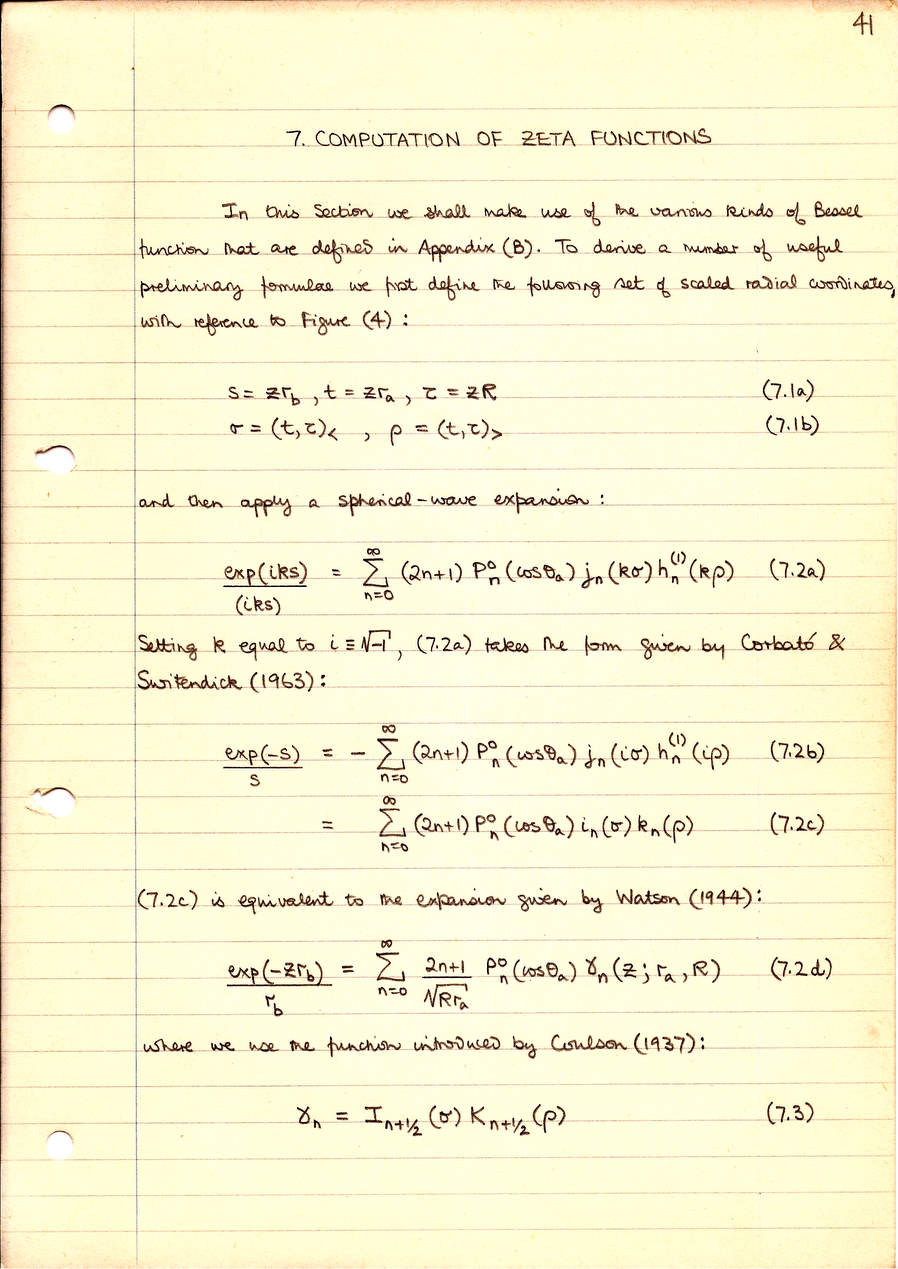 41
7. COMPUTATION OF ZETA FUNCTIONS
In this Section we shall make use of the various kinds of Bessel
function that are defined in Appendix (B). To derive a number of useful
preliminary formulae we first define the following set of scaled radial coordinates,
with reference to Figure (4) :
s = zr_b , t = zr_a , τ = zR (7.1a)
σ = (t,τ)< , ρ = (t,τ)> (7.1b)
and then apply a spherical-wave expansion :
exp(iks)/(iks) = ∑_{n=0}^{∞} (2n+1) P_n^0 (cosθ_a) j_n (kσ) h_n^{(1)} (kρ) (7.2a)
Setting k equal to i ≡ √-1, (7.2a) takes the form given by Corbató &
Switendick (1963) :
exp(-s)/s = - ∑_{n=0}^{∞} (2n+1) P_n^0 (cosθ_a) j_n (iσ) h_n^{(1)} (iρ) (7.2b)
= ∑_{n=0}^{∞} (2n+1) P_n^0 (cosθ_a) i_n (σ) k_n (ρ) (7.2c)
(7.2c) is equivalent to the expansion given by Watson (1944) :
exp(-zr_b)/r_b = ∑_{n=0}^{∞} (2n+1)/√(Rr_a) P_n^0 (cosθ_a) γ_n (z ; r_a , R) (7.2d)
where we use the function introduced by Coulson (1937) :
γ_n = I_{n+1/2} (σ) K_{n+1/2} (ρ) (7.3)